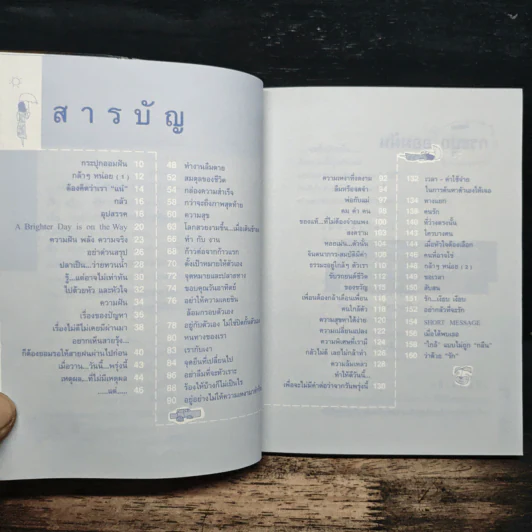 สารบัญ
กระปุกออมฝัน 10
กล้าๆ หน่อย (1) 12
ต้องคิดว่าเรา "แน่" 14
กลัว 16
อุปสรรค 18
A Brighter Day is on the Way 20
ความฝัน พลัง ความจริง 22
อย่าด่วนสรุป 24
ปลาเป็น...ว่ายทวนน้ำ 26
รู้...แต่อาจไม่เท่าทัน 28
ไปด้วยหัว และหัวใจ 32
ความฝัน 34
เรื่องของปัญหา
เรื่องไม่ดีไม่เคยมีผ่านมา
อยากเห็นสายรุ้ง...
ก็ต้องยอมรอให้สายฝนผ่านไปก่อน 40
เมื่อวาน...วันนี้...พรุ่งนี้
เหตุผล...ที่ไม่มีเหตุผล
...แต่..... 46
48 ทำงานลืมตาย
52 สมดุลของชีวิต
54 กล่องความสำเร็จ
58 กว่าจะถึงภาพสุดท้าย
60 ความสุข
62 โลกสวยงามขึ้น...เมื่อเดินช้าลง
66 ทำ กับ งาน
68 ก้าวต่อจากก้าวแรก
70 ตั้งเป้าหมายให้ตัวเอง
72 จุดหมายและปลายทาง
74 ขอบคุณวันอาทิตย์
76 อย่าให้ความเคยชิน
ล้อมกรอบตัวเอง
78 อยู่กับตัวเอง
80 หนทางของเรา
82 เรากับเงา
84 จุดยืนที่เปลี่ยนไป
86 อย่าลืมที่จะหัวเราะ
88 ร้องไห้บ้างก็ไม่เป็นไร
90
ความเหงาที่งดงาม 92
ลืมหรือจดจำ 94
พ่อกับแม่
คน ค้า คน
ของแท้...ที่ไม่ต้องจ่ายแพง
สงคราม
จินตนาการสมบัติมีค่า
ธรรมะอยู่ใกล้ๆ ตัวเรา
ขับรถยนต์ชีวิต
ของขวัญ
เพื่อนต้องกล้าเตือนเพื่อน
คนใกล้ตัว
ความสุขหาได้ง่าย
ความเปลี่ยนแปลง
ความพิเศษที่เรามี
กลัวไม่ดี เลยไม่กล้าทำ
ความล้มเหลว
ทำให้ดีวันนี้...
เพื่อจะไม่มีคำต่อว่าจากวันพรุ่งนี้ 130
132 เวลา - ค่าใช้จ่าย
ในการค้นหาตัวเองให้เจอ
134 ทางแยก
136 คนรัก
140 ที่ว่างตรงนั้น
142 ใครบางคน
144 เมื่อหัวใจต้องเลือก
146 คนที่อาจใช่
กล้าๆ หน่อย (2)
ระยะเวลา
สับสน
รัก...เงียบ เงียบ
อย่ากลัวที่จะรัก
SHORT MESSAGE
เมื่อได้พบเธอ
"ใกล้" แบบไม่ถูก "กลืน"
160 ว่าด้วย "รัก"